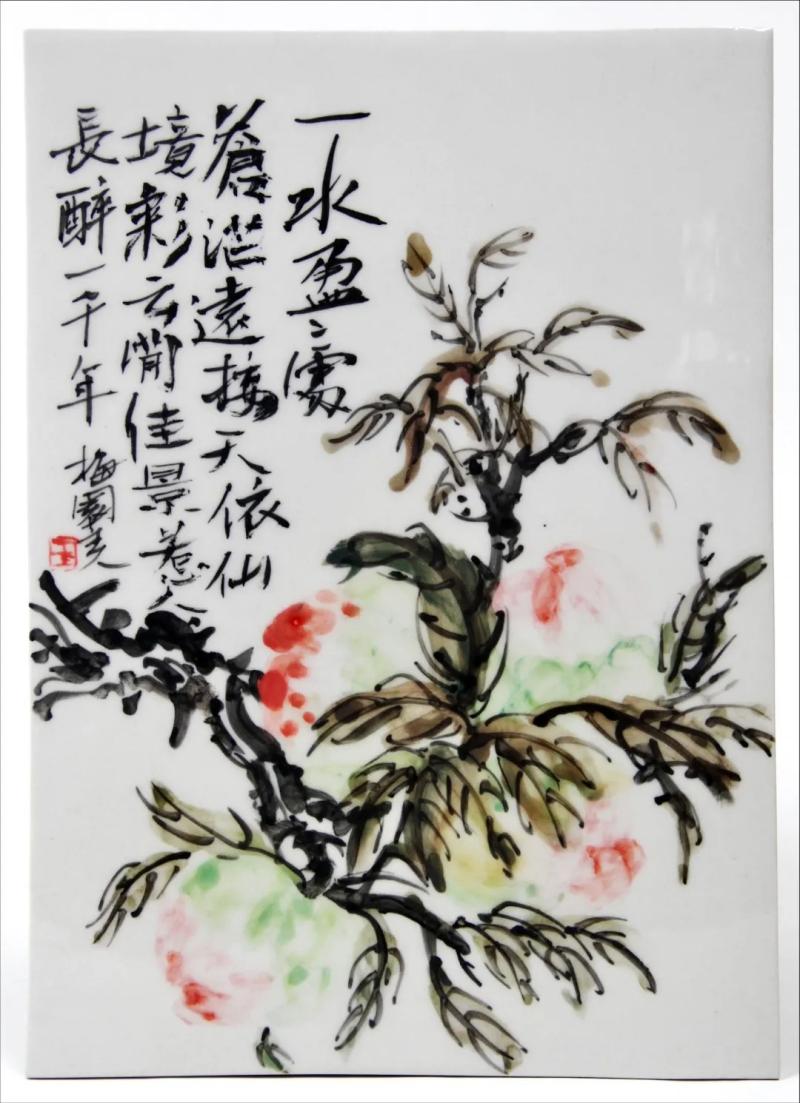 一水盈〻處
蒼茫遠接天依仙
境彩云間佳景惹人
長醉一千年
梅園